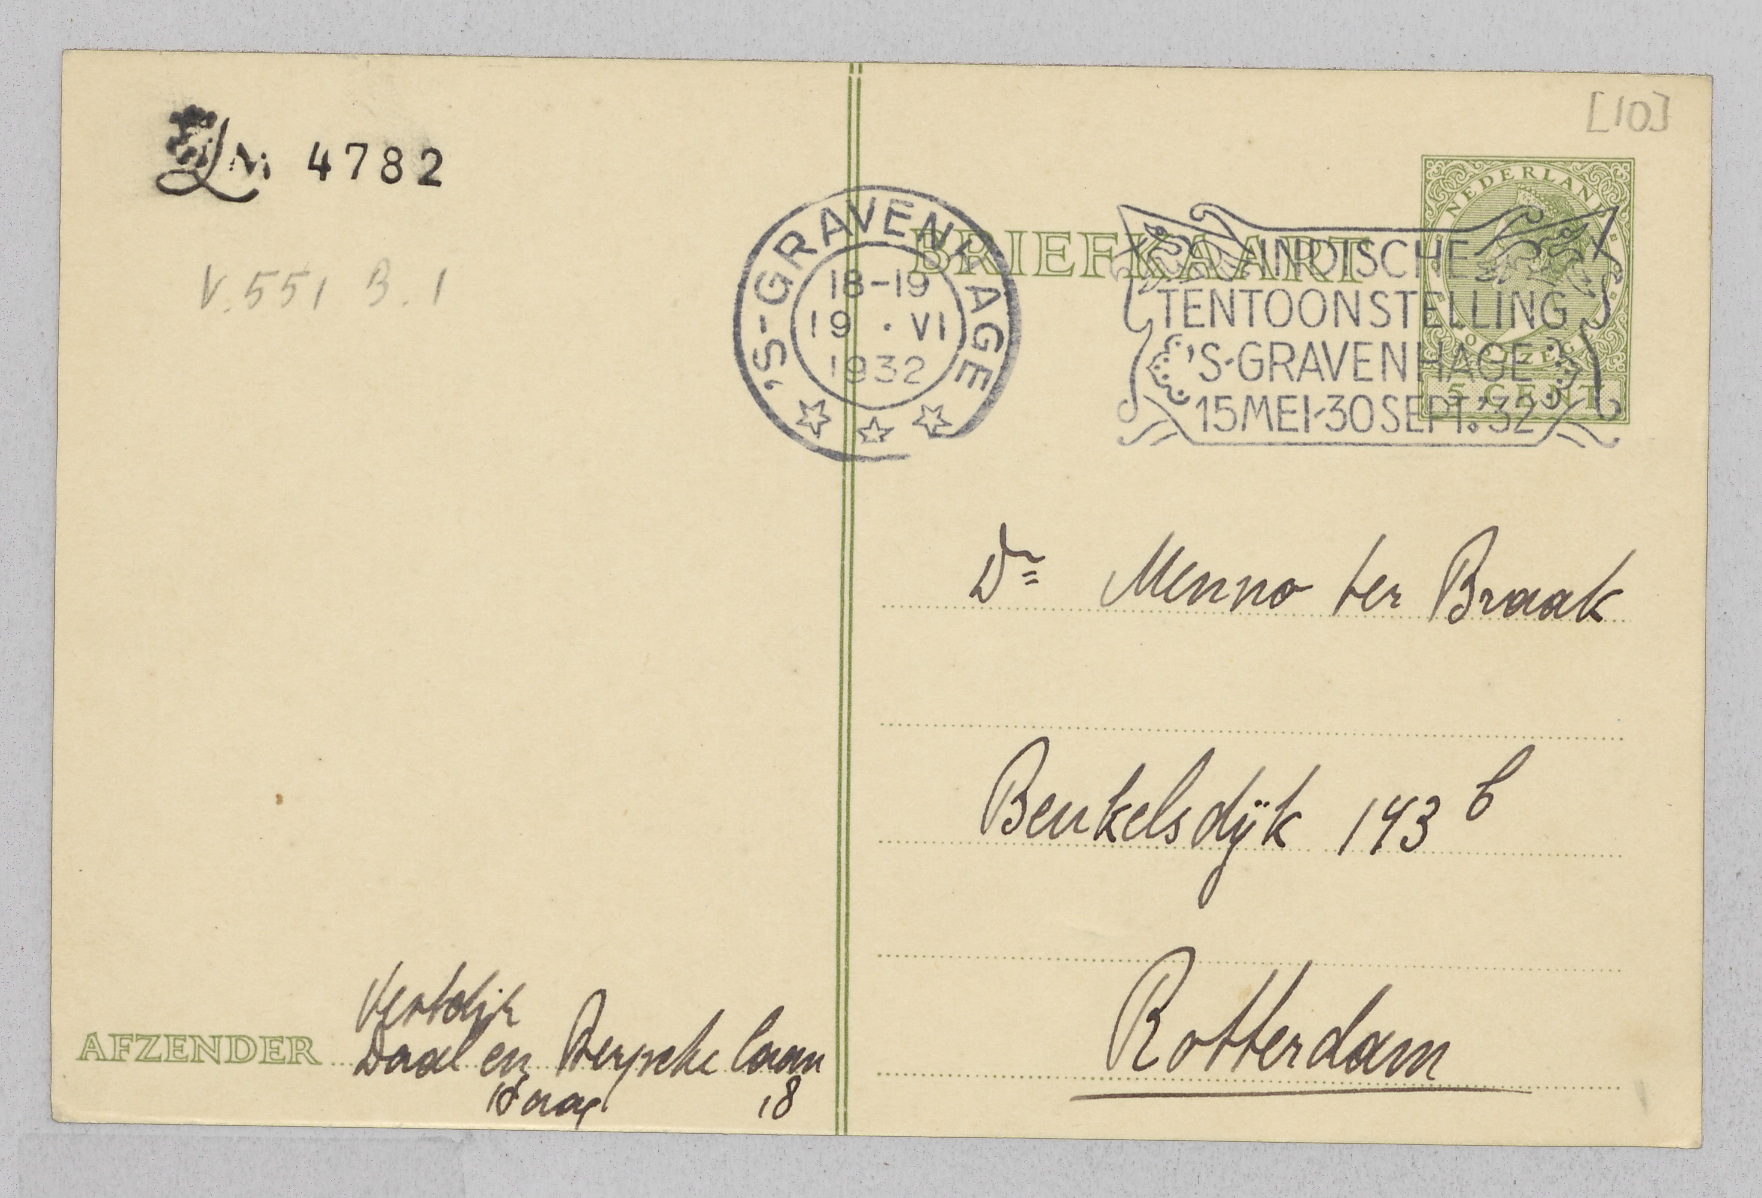 [10]
4782
V.551 B.1
'S-GRAVENHAGE
18-19
19 · VI
1932
BRIEFKAART
INDISCHE
TENTOONSTELLING
'S-GRAVENHAGE
15 MEI-30 SEPT. '32
NEDERLAND
5 CENT
Dr Menno ter Braak
Beukelsdijk 143 b
Rotterdam
AFZENDER
Daal en Bergsche laan
Haag 18